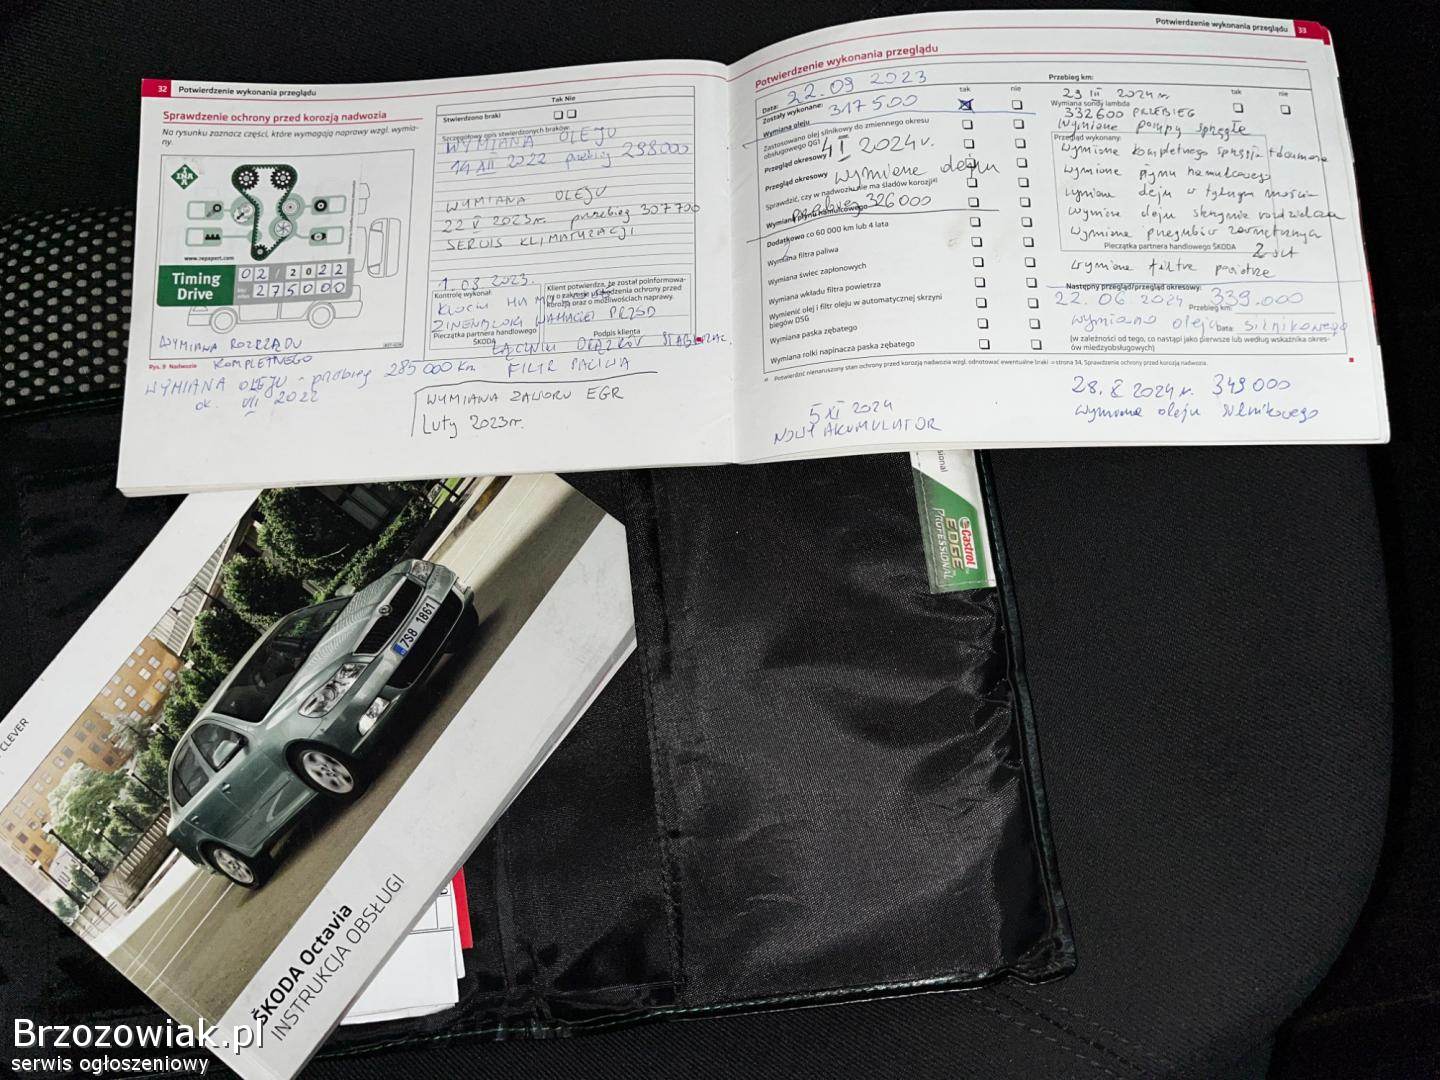 32 Potwierdzenie wykonania przeglądu
Sprawdzenie ochrony przed korozją nadwozia
Na rysunku zaznacz części, które wymagają naprawy wzgl. wymia-
ny.
INA
www.repxpert.com
Timing
Drive
02/2022
275000
Rys. 9 Nadwozie
WYMIANA ROZRZĄDU
KOMPLETNEGO
WYMIANA OLEJU - przebieg 285 000 km
ok. VII 2022
Tak Nie
Stwierdzono braki
Szczegółowy opis stwierdzonych braków
WYMIANA OLEJU
14 XII 2022 przebieg 298000
WYMIANA OLEJU
22 V 2023r. przebieg 307700
SERWIS KLIMATYZACJI
1.08.2023.
Kontrolę wykonał:
Klient potwierdza, że został poinformowa-
ny o zakresie sprawdzenia ochrony przed
korozją oraz o możliwościach naprawy.
KLOCKI
PRZÓD
Pieczątka partnera handlowego
ŠKODA
Podpis klienta
ŁĄCZNIKI
FILTR PALIWA
WYMIANA ZAWORU EGR
Luty 2023r.
Potwierdzenie wykonania przeglądu 33
Potwierdzenie wykonania przeglądu
Data: 22.09 2023
Zostały wykonane: 317500
tak nie
Wymiana oleju
Zastosowano olej silnikowy do zmiennego okresu
obsługowego QG1
4 I 2024r.
Przegląd okresowy
Przegląd okresowy wymiana oleju
Sprawdzić, czy w nadwoziu nie ma śladów korozji
przebieg 326000
Wymiana płynu hamulcowego
Dodatkowo co 60 000 km lub 4 lata
Wymiana filtra paliwa
Wymiana świec zapłonowych
Wymiana wkładu filtra powietrza
Wymienić olej i filtr oleju w automatycznej skrzyni
biegów DSG
Wymiana paska zębatego
Wymiana rolki napinacza paska zębatego
Potwierdzić nienaruszony stan ochrony przed korozją nadwozia wzgl. odnotować ewentualne braki → strona 34, Sprawdzenie ochrony przed korozją nadwozia.
5 XI 2024
NOWY AKUMULATOR
Przebieg km:
29 III 2024r.
tak nie
Wymiana sondy lambda
332600 PRZEBIEG
Wymiana pompy sprzęgła
Przegląd wykonany:
Wymiana kompletnego sprzęgła
Wymiana płynu hamulcowego
Wymiana oleju w tylnym moście
Wymiana oleju skrzynia rozdzielcza
Wymiana przegubów zewnętrznych
Pieczątka partnera handlowego ŠKODA
2 szt
Wymiana filtra powietrza
Następny przegląd/przegląd okresowy:
22.06 2024 339.000
Przebieg km:
Wymiana oleju Data: silnikowego
(w zależności od tego, co nastąpi jako pierwsze lub według wskaźnika okres-
ów międzyobsługowych)
28. X 2024r. 349000
Wymiana oleju silnikowego
sional
Castrol
EDGE
PROFESSIONAL
CLEVER
7S8 1861
ŠKODA Octavia
INSTRUKCJA OBSŁUGI
Brzozowiak.pl
serwis ogłoszeniowy